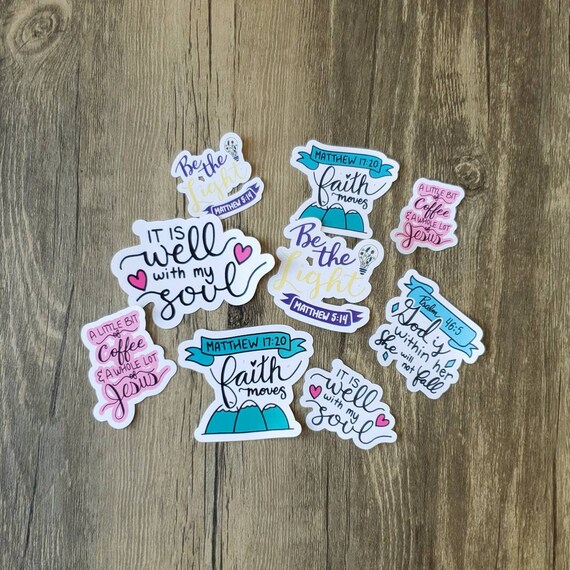 Be the
Light
MATTHEW 5:14
MATTHEW 17:20
faith
moves
A LITTLE BIT
of
Coffee
& A WHOLE LOT
of
Jesus
IT IS
well
with my
soul
Be the
Light
MATTHEW 5:14
Psalm 46:5
God is
within her
she will
not fall
A LITTLE BIT
of
Coffee
& A WHOLE LOT
of
Jesus
MATTHEW 17:20
faith
moves
IT IS
well
with my
soul